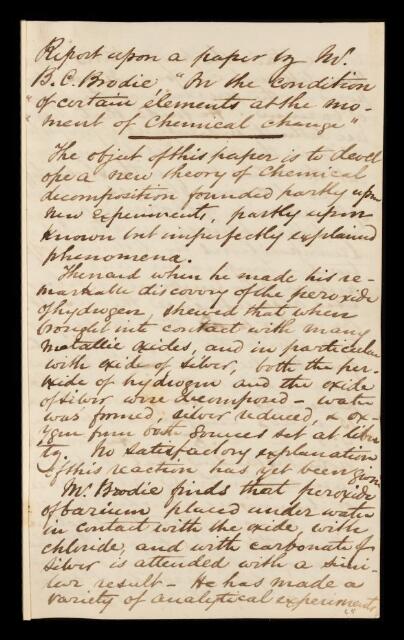 Report upon a paper by Mr.
B. C. Brodie, "On the condition
"of certain elements at the mo-
"ment of Chemical change"
The object of this paper is to devel
ope a new theory of chemical
decomposition founded partly upon
new experiments, partly upon
known but imperfectly explained
phenomena.
Thenard when he made his re-
markable discovery of the peroxide
of hydrogen, shewed that when
brought into contact with many
metallic oxides, and in particular
with oxide of silver, both the per-
oxide of hydrogen and the oxide
of silver were decomposed - water
was formed, silver reduced, & ox-
ygen from both sources set at liber
ty. No satisfactory explanation
of this reaction has yet been given
Mr. Brodie finds that peroxide
of barium placed under water
in contact with the oxide, with
chloride, and with carbonate of
silver is attended with a simi-
lar result - He has made a
variety of analytical experiments,